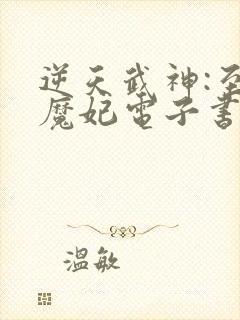 逆天武神:至
魔妃電子書
溫敏